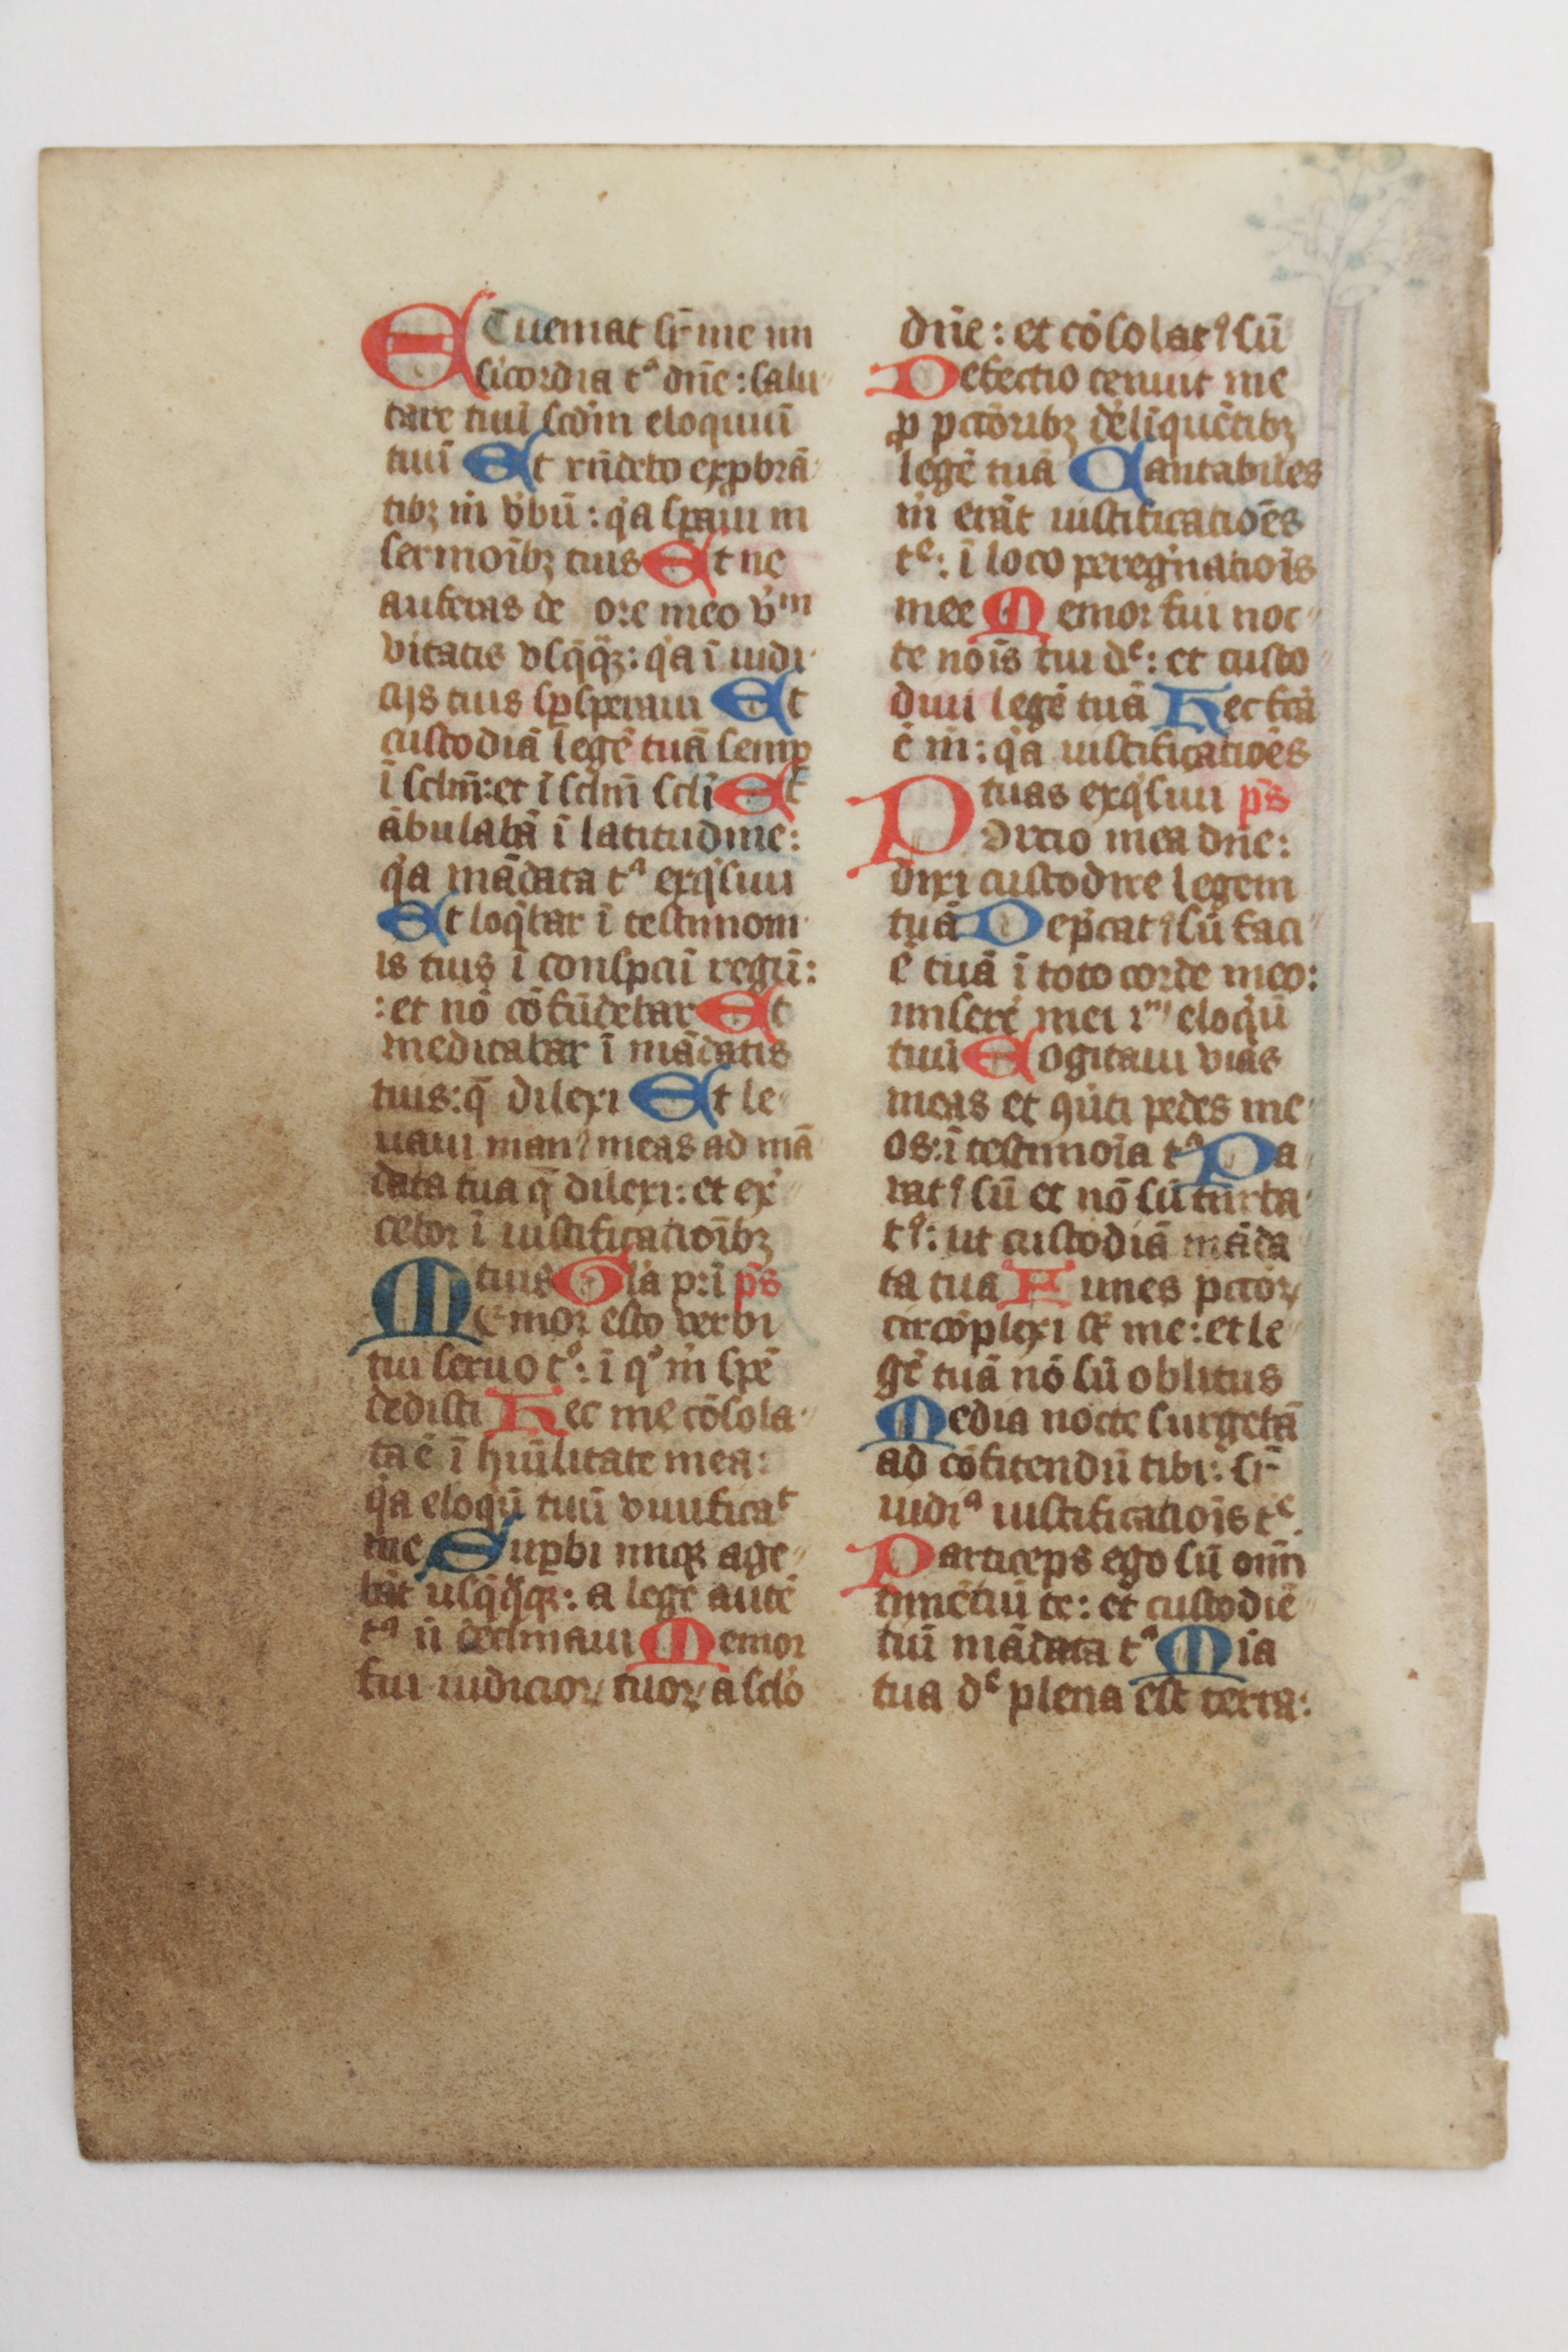 Et ueniat sr̄ me mi
sicordia tᵃ dn̄e : salu
tare tuū scdm̄ eloquiū
tuū Et rn̄debo exprobrā
tibꝫ m̄ v̓bū : q̓a spaui in
sermoībꝫ tuis Et ne
auferas de ore meo v̓ᵐ
vitatis vsq̄q̄ꝫ : q̓a ī iudi
cijs tuis sꝑsperaui Et
custodiā legē tuā semꝑ
ī sclm̄ : et ī sclm̄ scli Et
ābulabā ī latitudine :
q̓a mādata tᵃ exq̓siui
Et loq̄bar ī testimoni
is tuis ī conspcū regū :
: et nō cōfūdebar Et
meditabar ī mādatis
tuis : q̄ dilexi Et le
uaui manꝰ meas ad mā
data tua q̄ dilexi : et ex̓
cebor ī iustificatioībꝫ
tuis Gl̓a pri p̄s
Memor esto verbi
tui seruo tᵒ : ī qᵒ m̄ spē
dedisti Hec me cōsola
ta ē ī hūilitate mea :
q̓a eloqū tuū viuificaᵗ
me Suꝑbi iniqꝫ age
bāt usq̄q̄qꝫ : a lege autē
tᵃ n̄ declinaui Memor
fui iudicioꝝ tuoꝝ a sclo
dn̄e : et cōsolatꝰ sū
Defectio tenuit me
ꝓ pctōribꝫ delīquētibꝫ
legē tuā Cantabiles
m̄ erāt iustificatiōes
tᵉ : ī loco peregͥnatiois
mee Memor fui noc
te nois tui dᵉ : et custo
diui legē tuā Hec fcā
ē m̄ : q̓a iustificatiōes
tuas exq̓siui p̄s
Portio mea dn̄e :
dixi custodire legem
tuā Dep̄catꝰ sū faci
ē tuā ī toto corde meo :
miserē mei iᵐ eloqū
tuū Cogitaui vias
meas et ꝯūti pedes me
os : ī testimoīa tᵃ Pa
ratꝰ sū et nō sū turba
tꝰ : ut custodiā māda
ta tua Funes pctoꝝ
circōplexi st̄ me : et le
gē tuā nō sū oblitus
Media nocte surgebā
ad cōfitendū tibi : sr̄
iudiᵃ iustificatiois tᵉ
Particeps ego sū oīm
timētiū te : et custodiē
tiū mādata tᵃ Mia
tua dᵉ plena est terra :